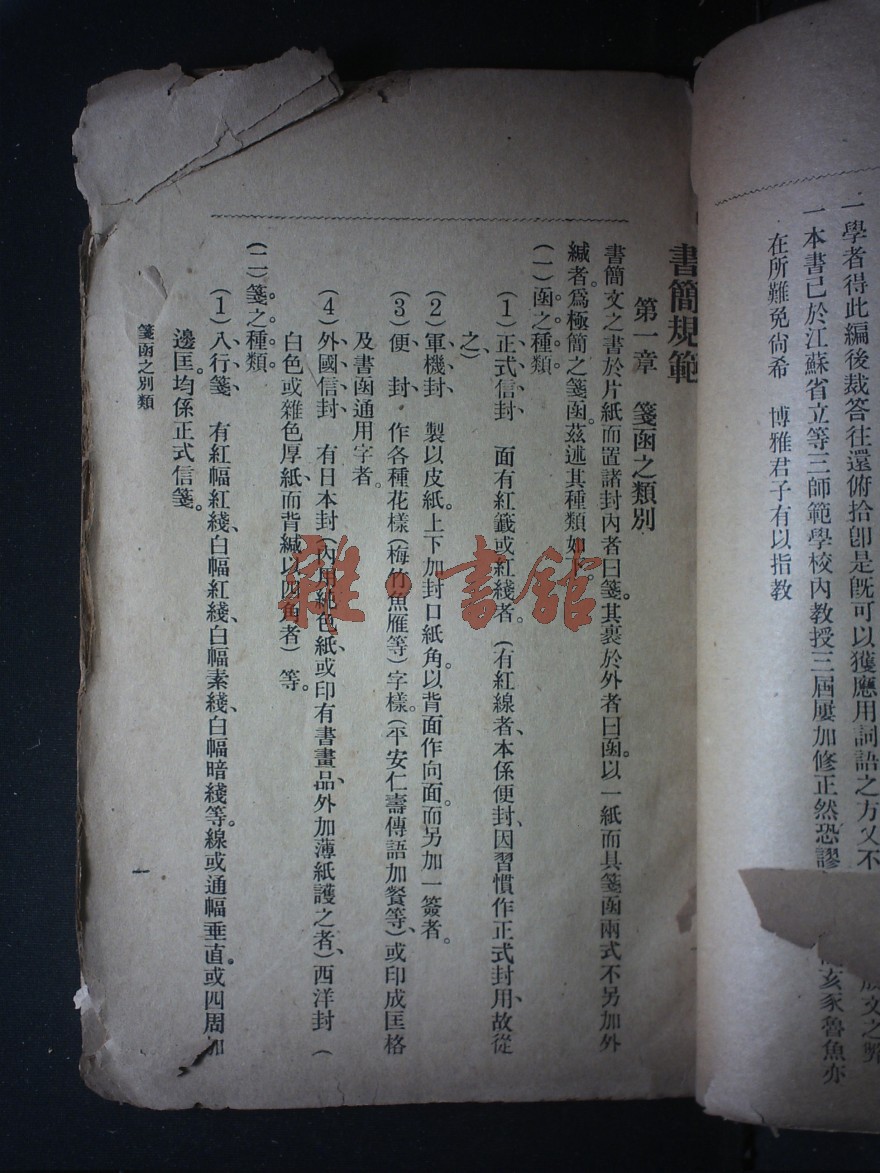 一學者得此編後裁答往還俯拾卽是旣可以獲應用詞語之方又不 成文之弊
一本書已於江蘇省立等三師範學校內教授三屆屢加修正然恐謬 亥豕魯魚亦
在所難免尙希 博雅君子有以指教
書簡規範
第一章 箋函之類別
書簡文之書於片紙而置諸封內者曰箋。其裹於外者曰函。以一紙而具箋函兩式不另加外
緘者。爲極簡之箋函。茲述其種類如下。
(一)函之種類。
(1)正式信封 面有紅籤或紅綫者。(有紅線者、本係便封、因習慣作正式封用、故從
之)
(2)軍機封 製以皮紙。上下加封口紙角。以背面作向面。而另加一簽者。
(3)便 封 作各種花樣(梅竹魚雁等)字樣。(平安仁壽傳語加餐等)或印成匡格
及書函通用字者。
(4)外國信封 有日本封(內用純色紙、或印有書畫品、外加薄紙護之者)、西洋封(
白色或雜色厚紙、而背緘以四角者)等。
(二)箋之種類。
(1)八行箋 有紅幅紅綫、白幅紅綫、白幅素綫、白幅暗綫等。線或通幅垂直。或四周加
邊匡。均係正式信箋。
箋函之別類
一
雜·書館